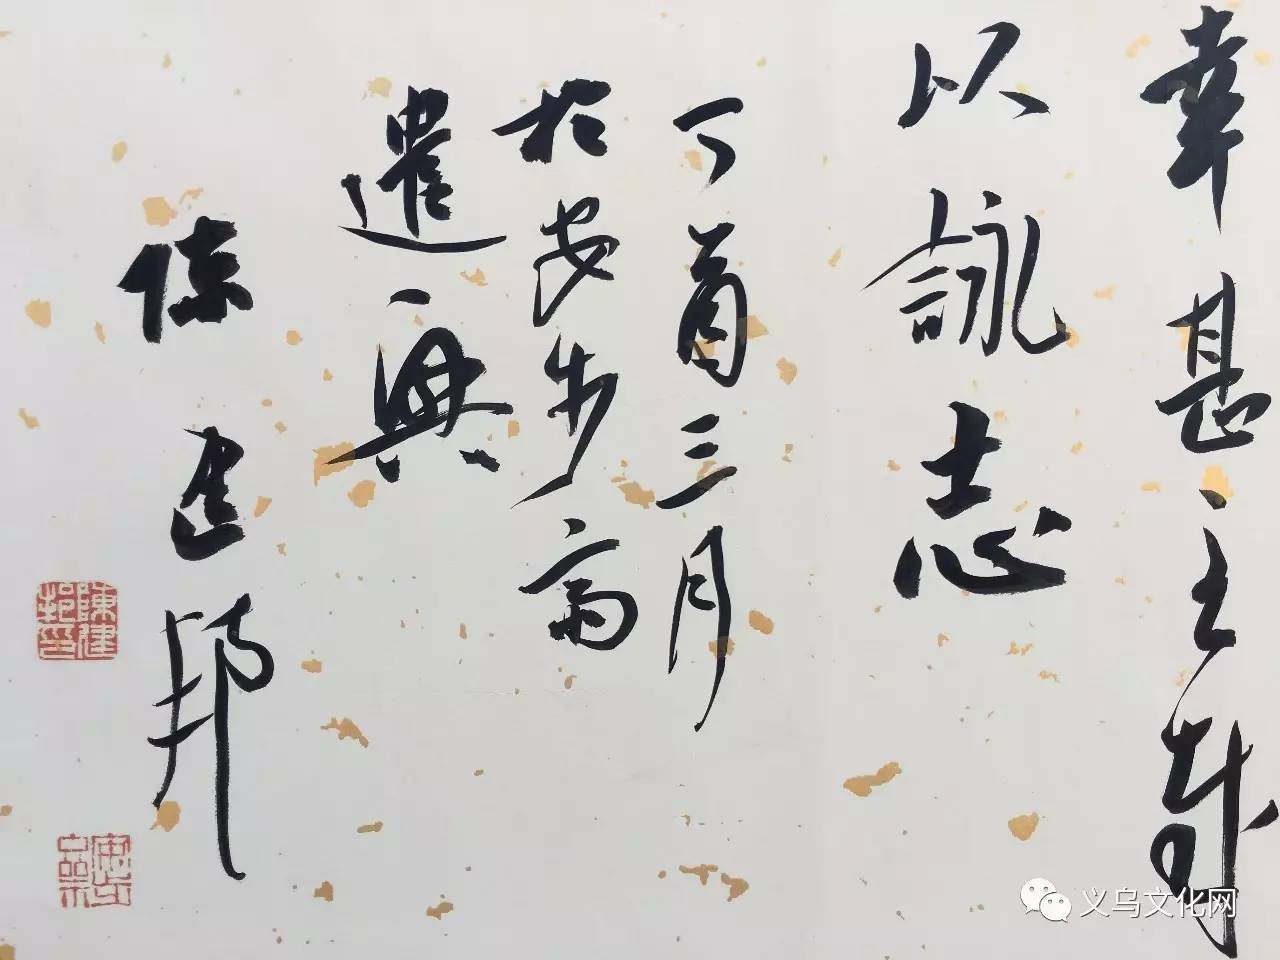 幸甚之哉
以詠志
丁酉三月
於安步斋
遣興
陳建邦
陳建邦印
义乌文化网